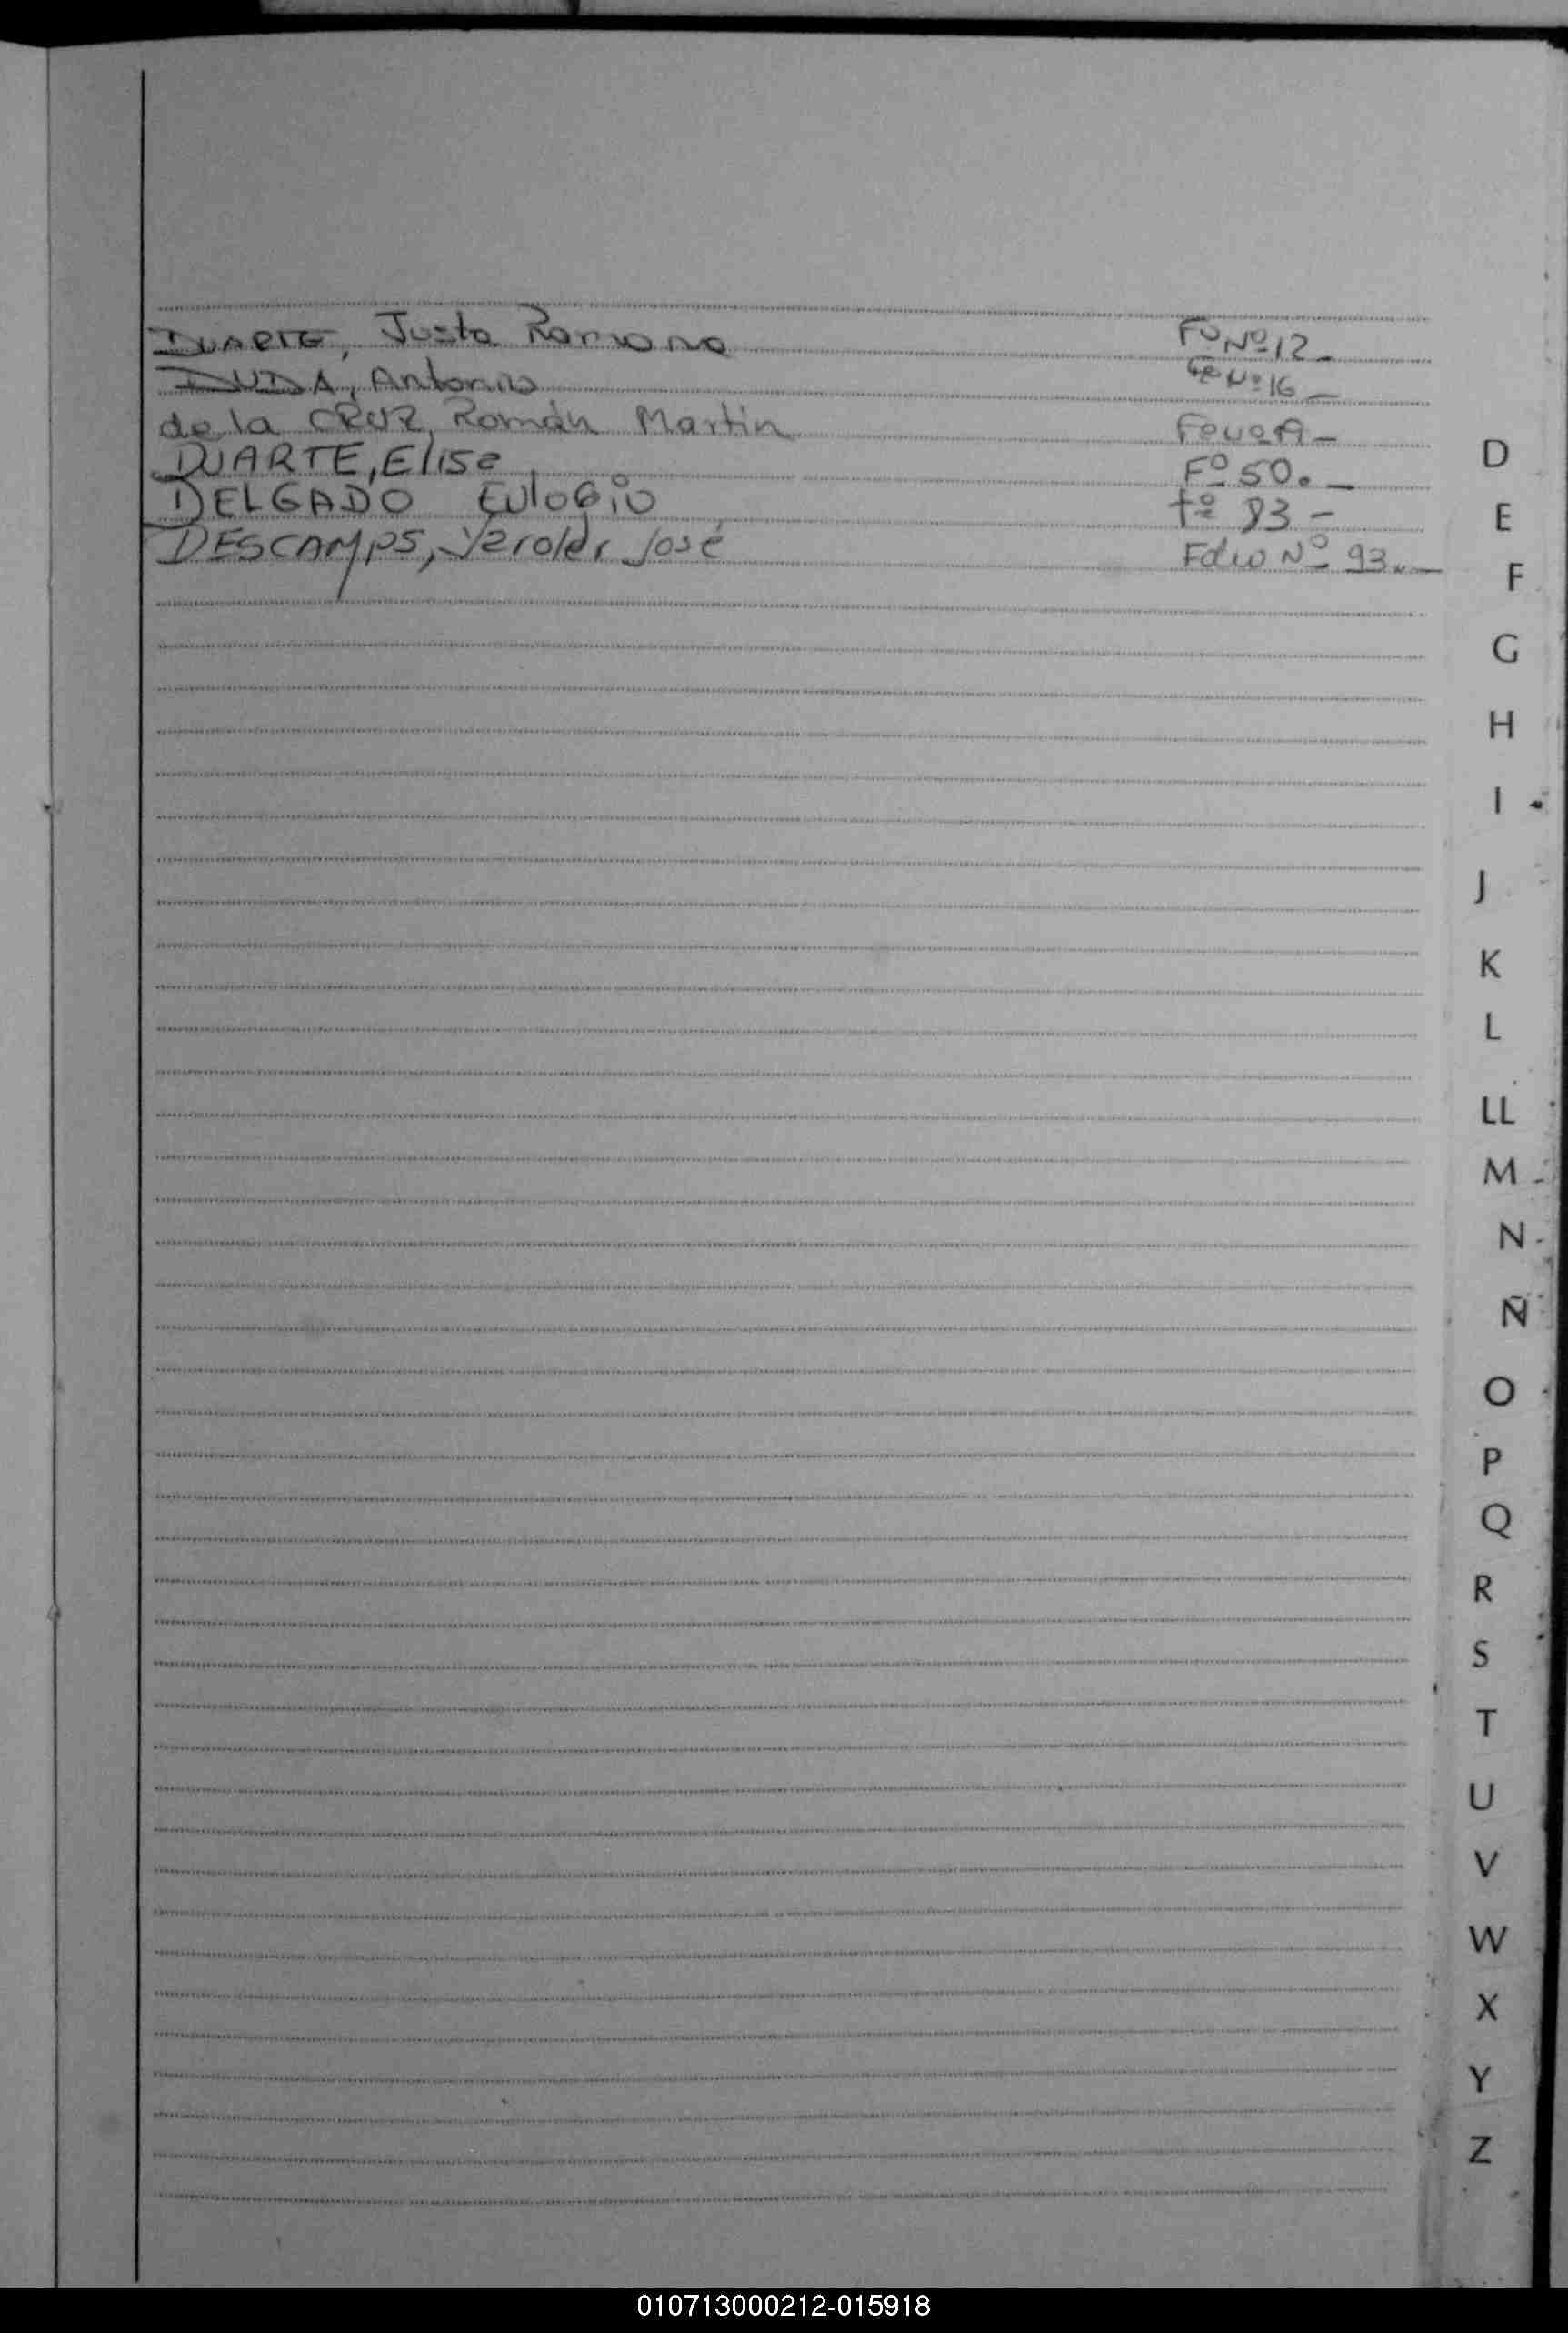 DUARTE, Justo Ramona Fº Nº 12_
DUDA, Antonio Fº Nº 16_
de la CRUZ, Román Martin
DUARTE, Elisa Fº 50._
DELGADO Eulogio Fº 83-
DESCAMPS, José Folio Nº 93._
D
E
F
G
H
I
J
K
L
LL
M
N
Ñ
O
P
Q
R
S
T
U
V
W
X
Y
Z
010713000212-015918